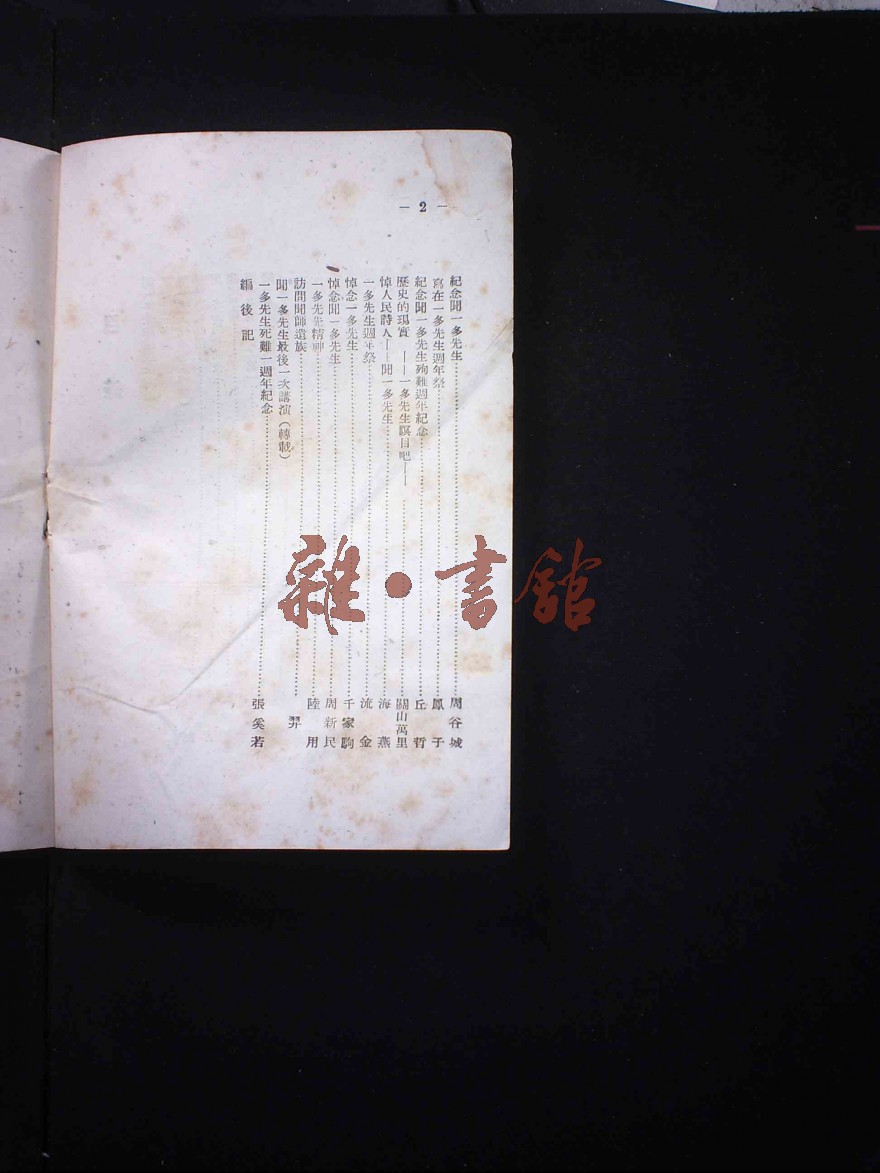 — 2 —
紀念聞一多先生……周谷城
寫在一多先生週年祭……鳳子
紀念聞一多先生殉難週年紀念……丘哲
歷史的現實——一多先生瞑目吧——……關山萬里
悼人民詩人——聞一多先生……海燕
一多先生週年祭……流金
悼念一多先生……千家駒
悼念聞一多先生……周新民
一多先生精神……陸用
訪問聞師遺族……羿
聞一多先生最後一次講演(轉載)
一多先生死難一週年紀念……張奚若
編後記
雜·書館